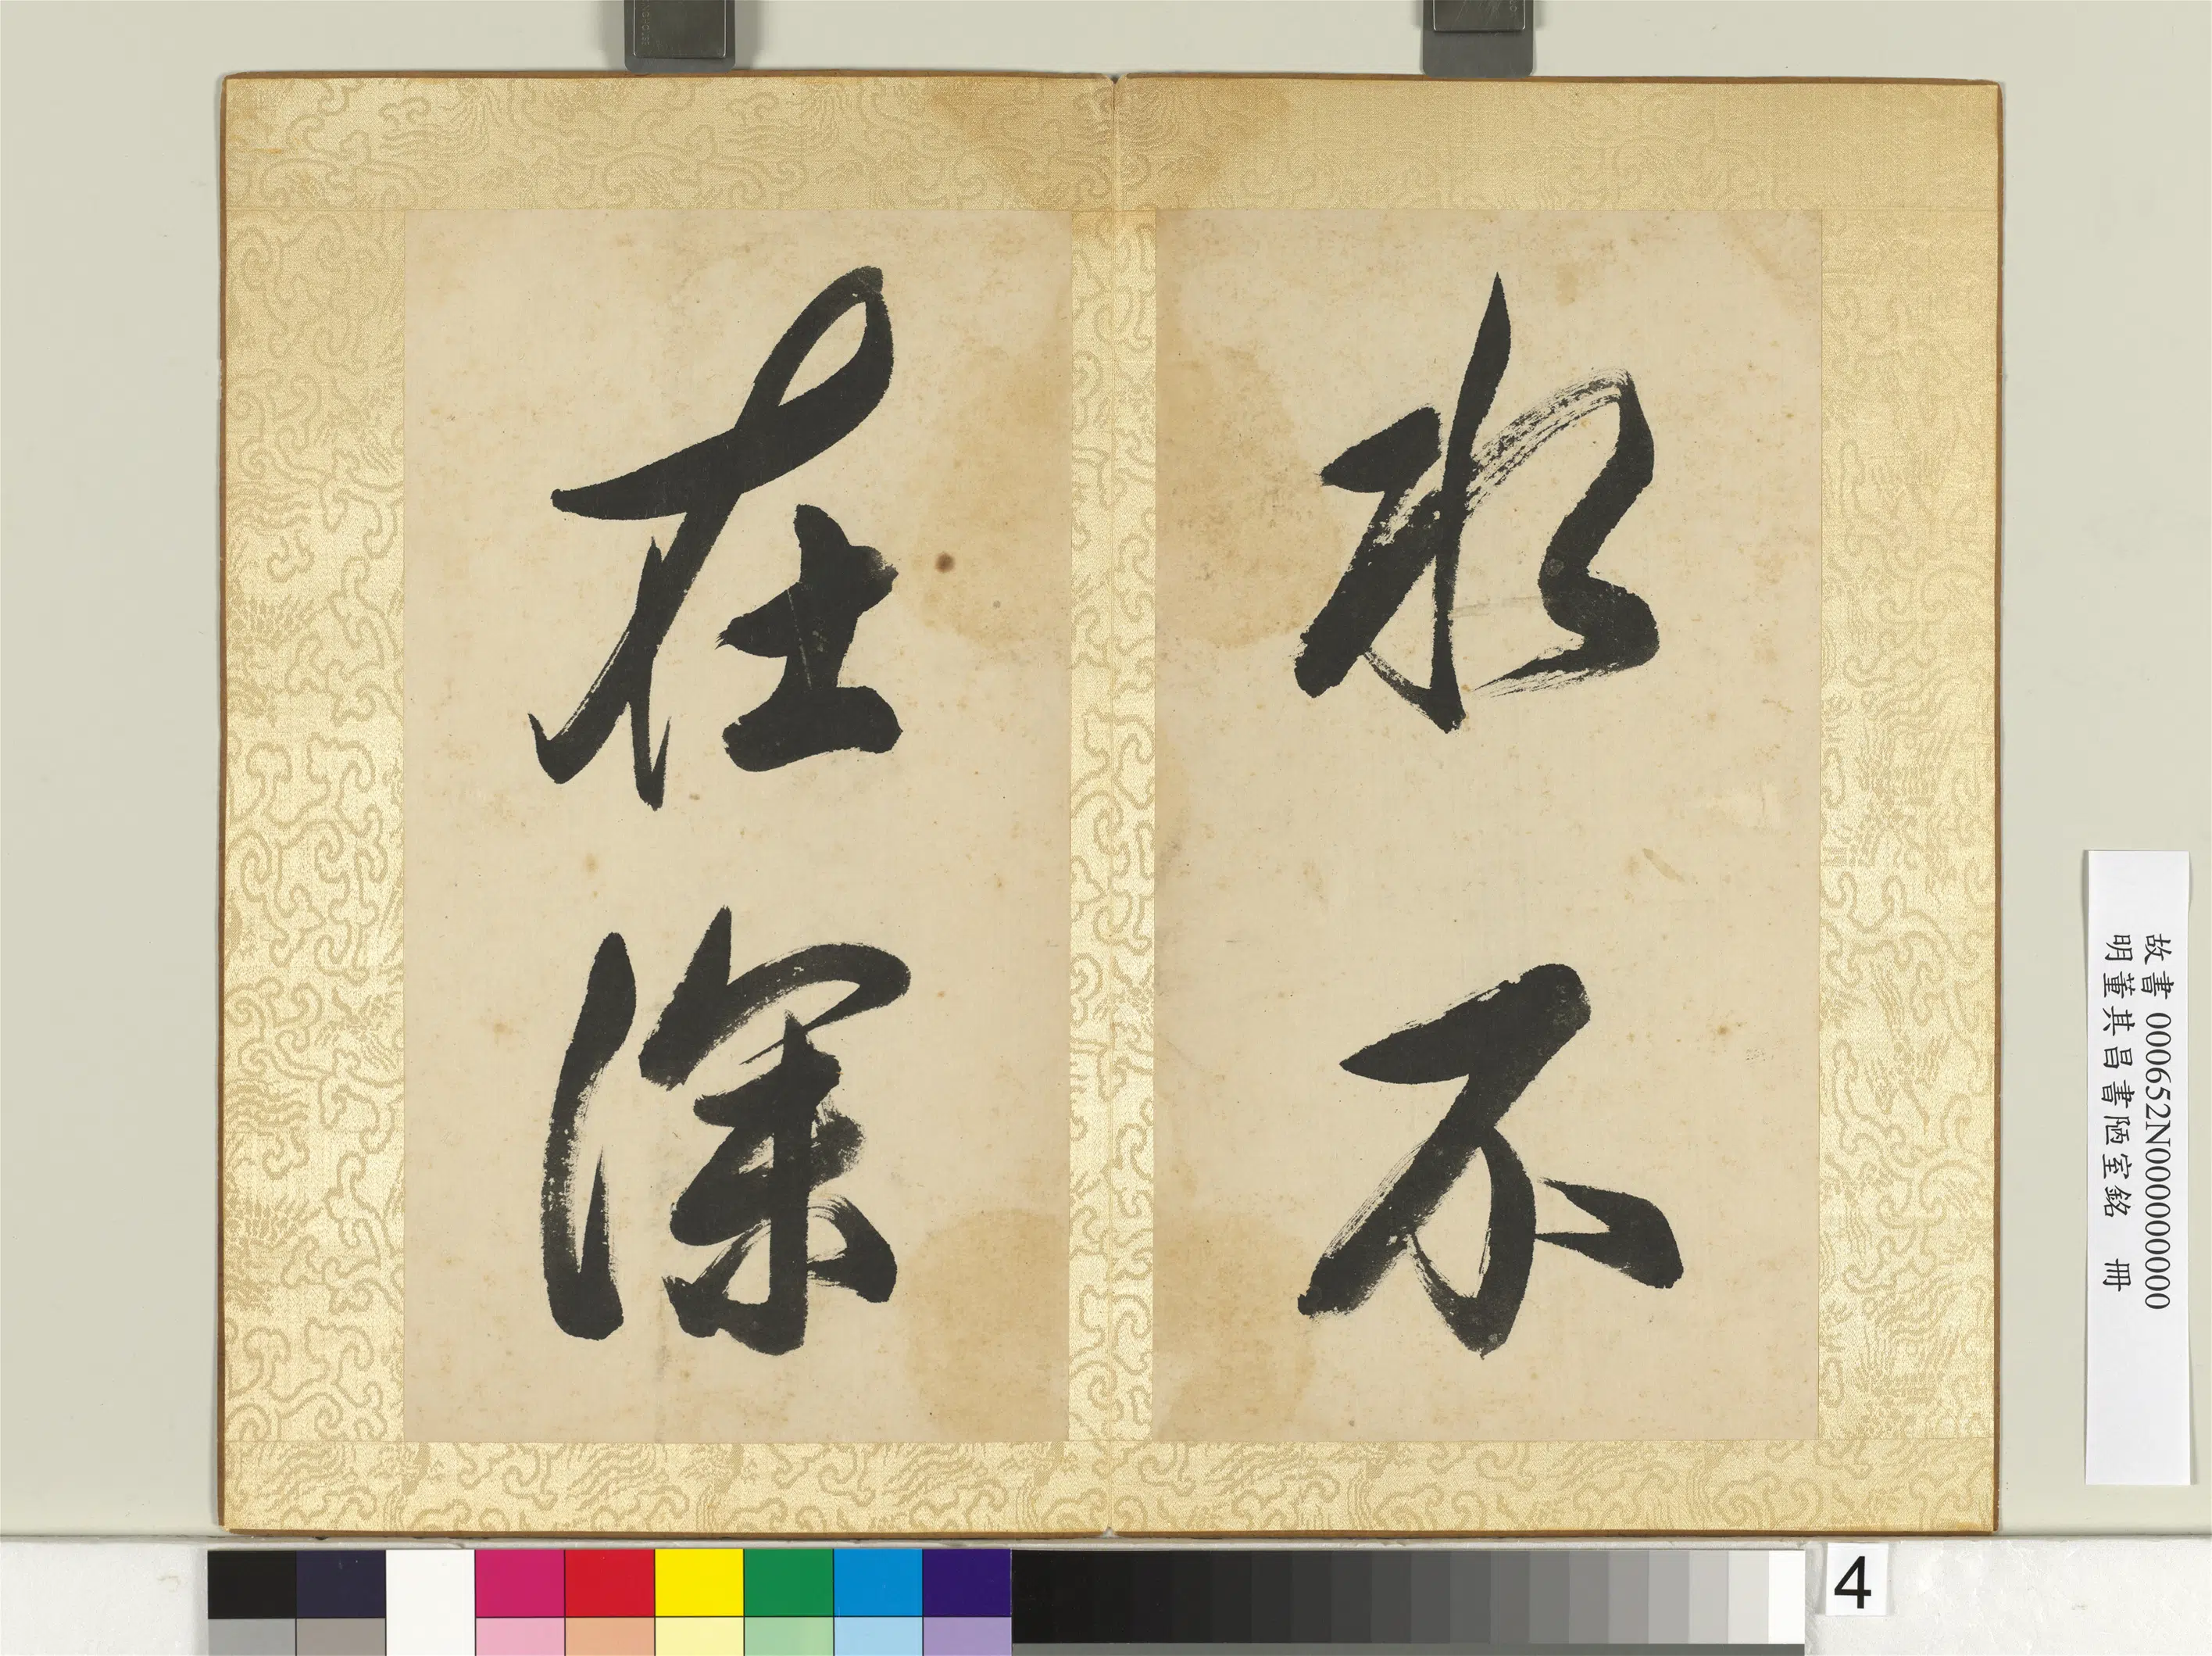 水不
在深
故書 000652N000000000
明董其昌書陋室銘 冊
4